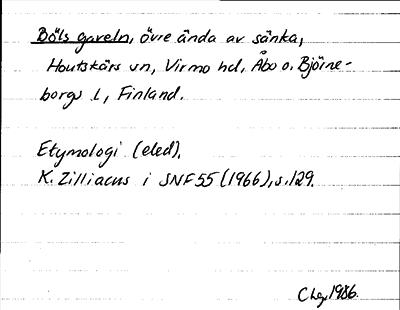 Böls gaveln, övre ända av sänka,
Houtskärs sn, Virmo hd, Åbo o. Björne-
borgs l, Finland.
Etymologi (eled).
K. Zilliacus i SNF 55 (1966), s. 129.
1986.